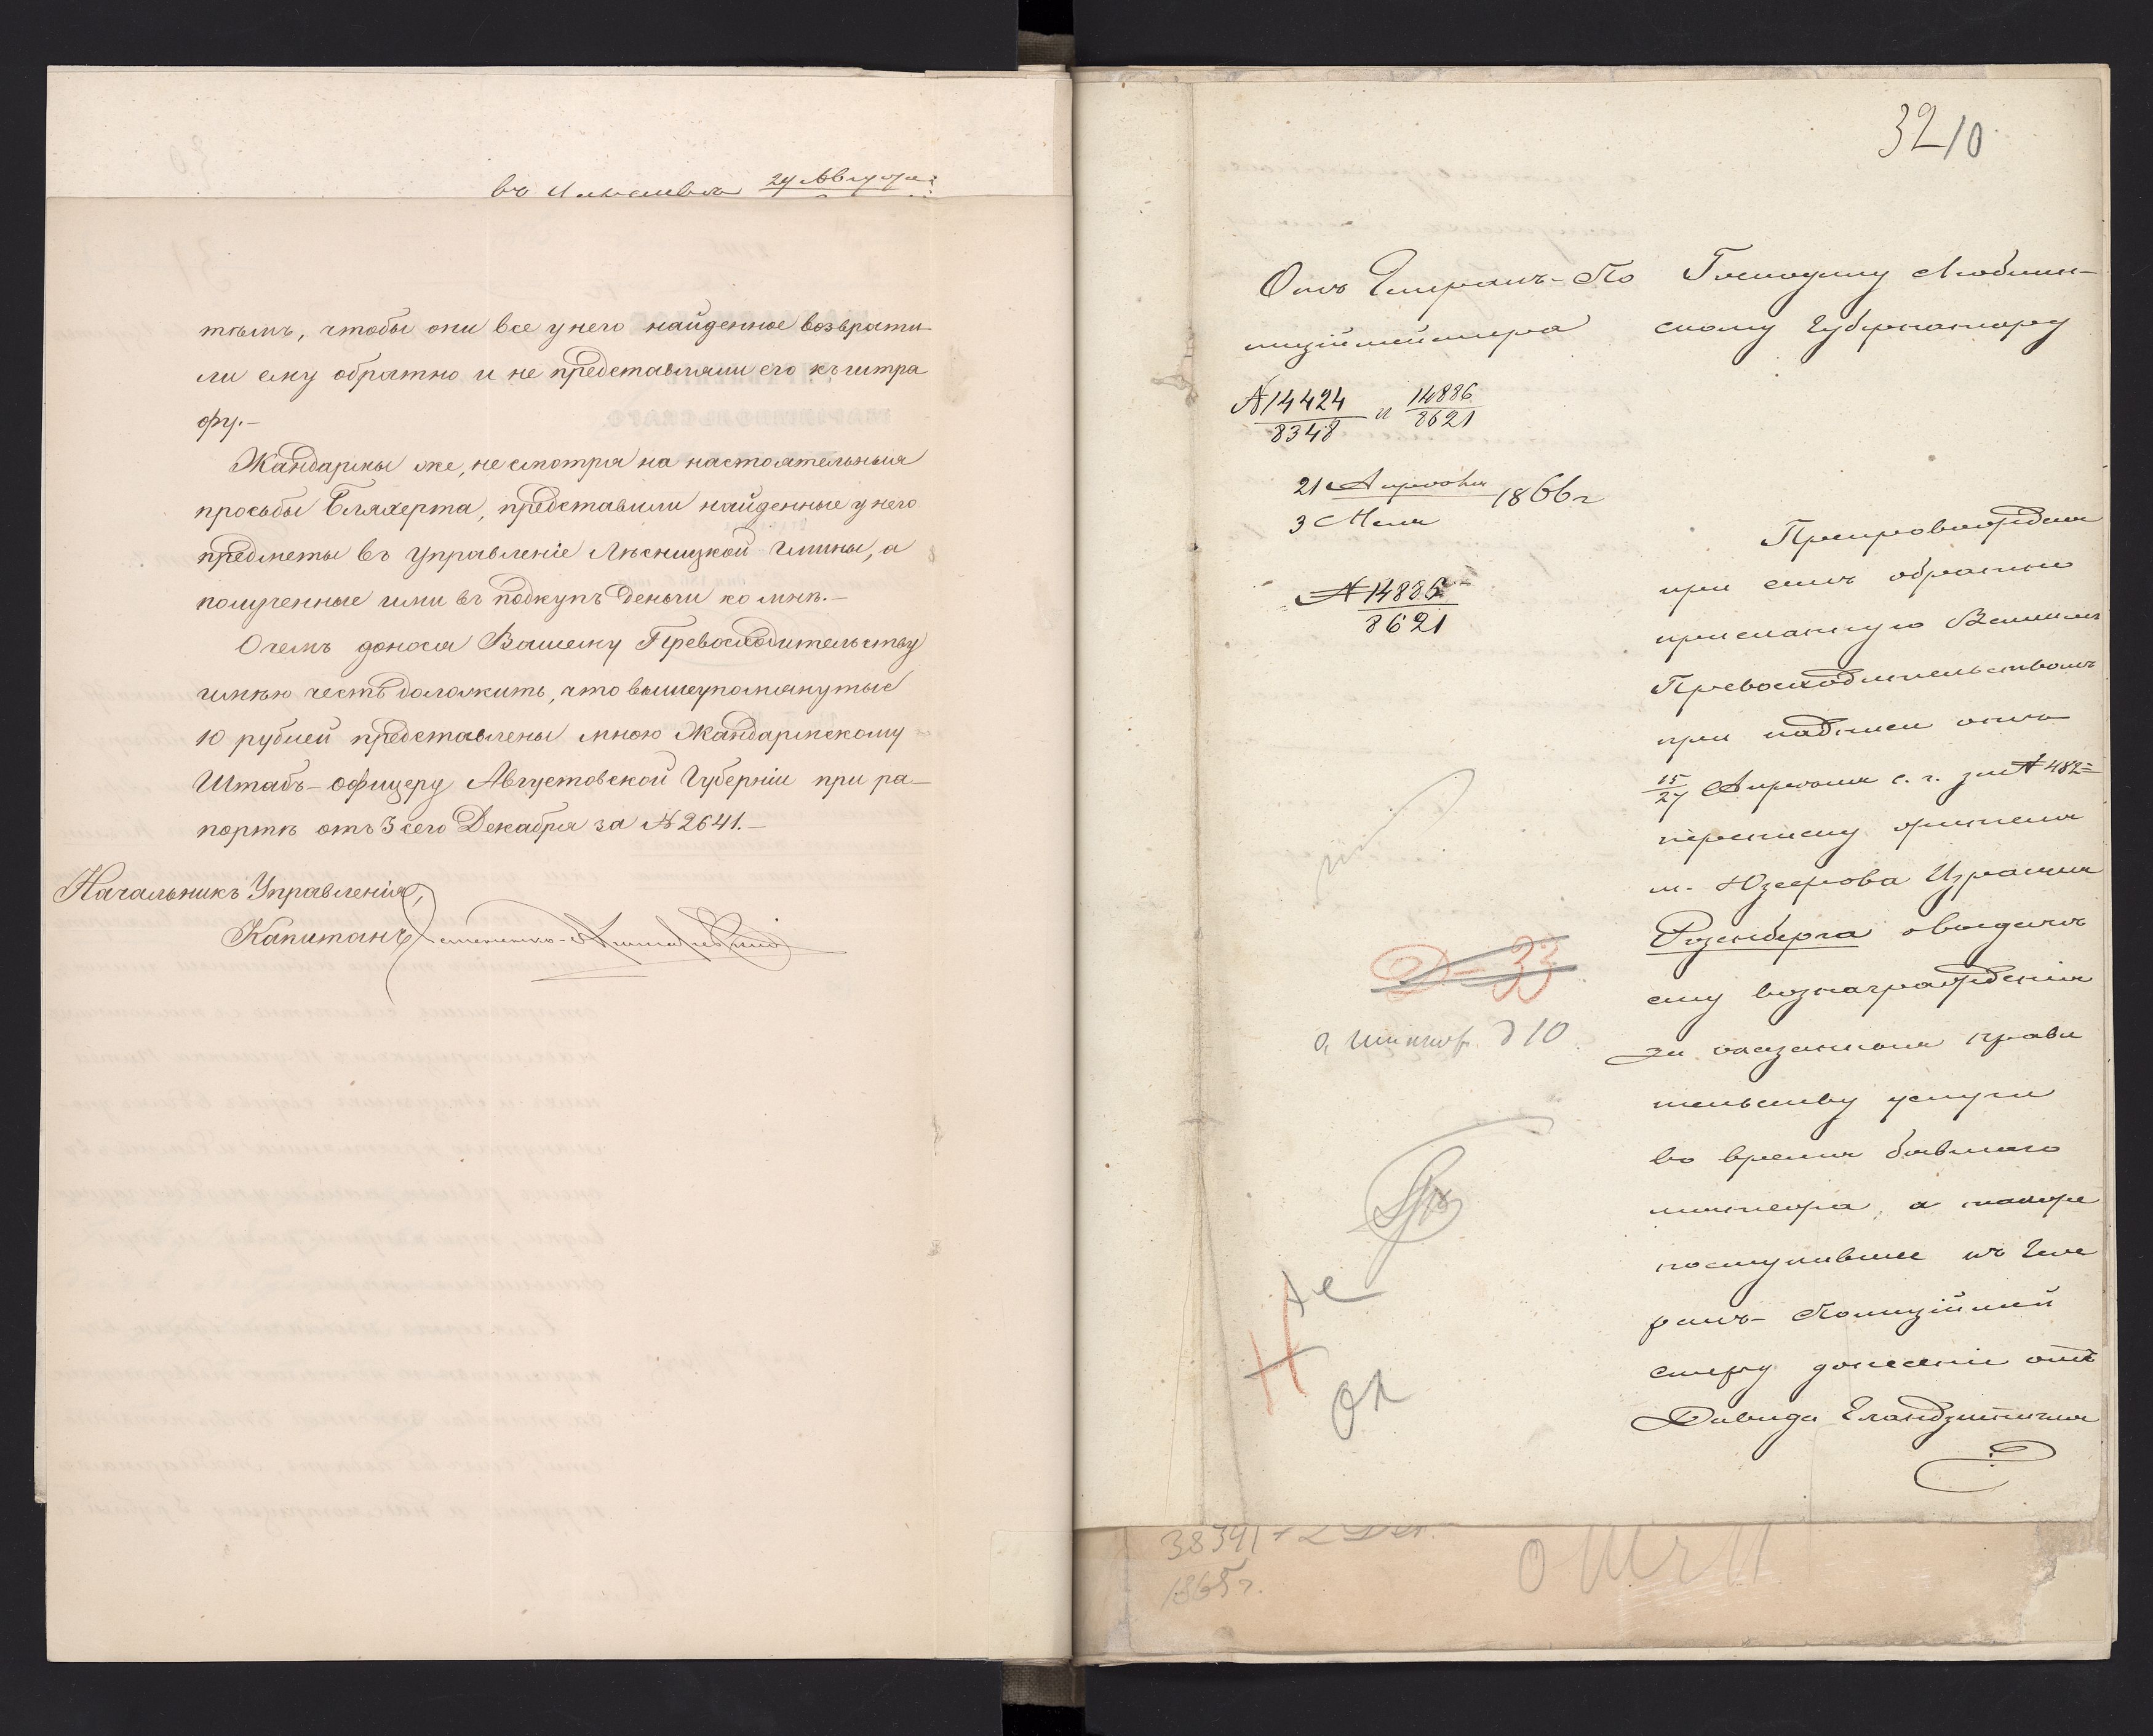 въ 29 Августа
тѣмъ, чтобы они все у него найденное возврати-
ли ему обратно и не представляли его къ штра
фу.—
Жандармы же, не смотря на настоятельныя
просьбы Бляхерта, представили найденные у него
предметы въ Управленіе Лѣсницкой Гмины, а
полученные ими въ подкупъ деньги ко мнѣ.—
О чемъ донося Вашему Превосходительству
имѣю честь доложить, что вышеупомянутые
10 рублей представлены мною Жандармскому
Штабъ-офицеру Августовской Губерніи при ра-
портѣ отъ 3 сего Декабря за № 2641.—
Начальникъ Управленія,
Капитанъ
32 10
Отъ Генералъ-По
лиціймейстера
№ 14424/8348 и 14886/8621
21 Апрѣля / 3 Мая 1866 г
№ 14886/8621
Д-33
д 10
Господину Люблин-
скому Губернатору
Препровождая
при семъ обратно
присланную Вашимъ
Превосходительствомъ
при надписи отъ
15/27 Апрѣля с. г. за № 482
переписку жителя
м. Юзефова Израиля
Розенберга о выдачѣ
ему вознагражденія
за оказанныя прави
тельству услуги
во время бывшаго
мятежа, а также
поступившее къ Гене
ралъ-Полиціймей
стеру донесеніе отъ
Давида
38391 2 Дек.
1865 г.